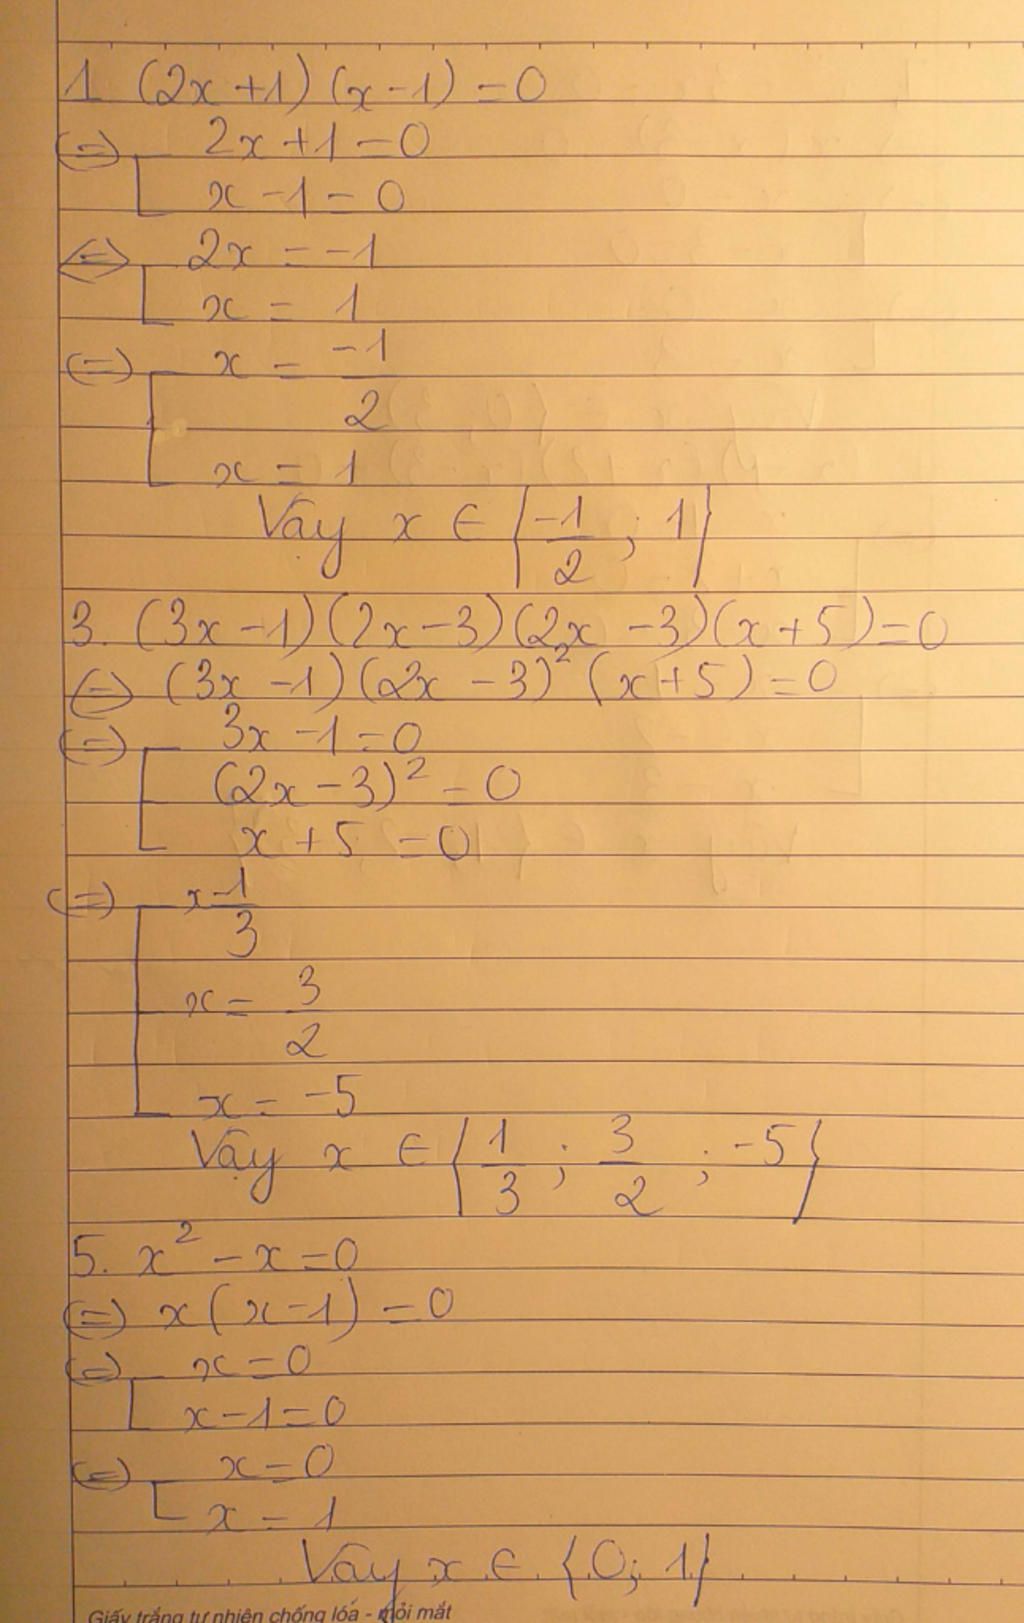 1 (2x+1)(x-1)=0
(=) [ 2x+1=0
x-1=0
<=> [ 2x=-1
x=1
(=) [ x=\frac{-1}{2}
x=1
Vậy x ∈ {\frac{-1}{2}; 1}
3. (3x-1)(2x-3)(2x-3)(x+5)=0
(=) (3x-1)(2x-3)²(x+5)=0
(=) [ 3x-1=0
(2x-3)²=0
x+5=0
(=) [ x=\frac{1}{3}
x=\frac{3}{2}
x=-5
Vậy x ∈ {\frac{1}{3}; \frac{3}{2}; -5}
5. x²-x=0
(=) x(x-1)=0
(=) [ x=0
x-1=0
(=) [ x=0
x=1
Vậy x ∈ {0; 1}
Giấy trắng tự nhiên chống lóa - mỏi mắt